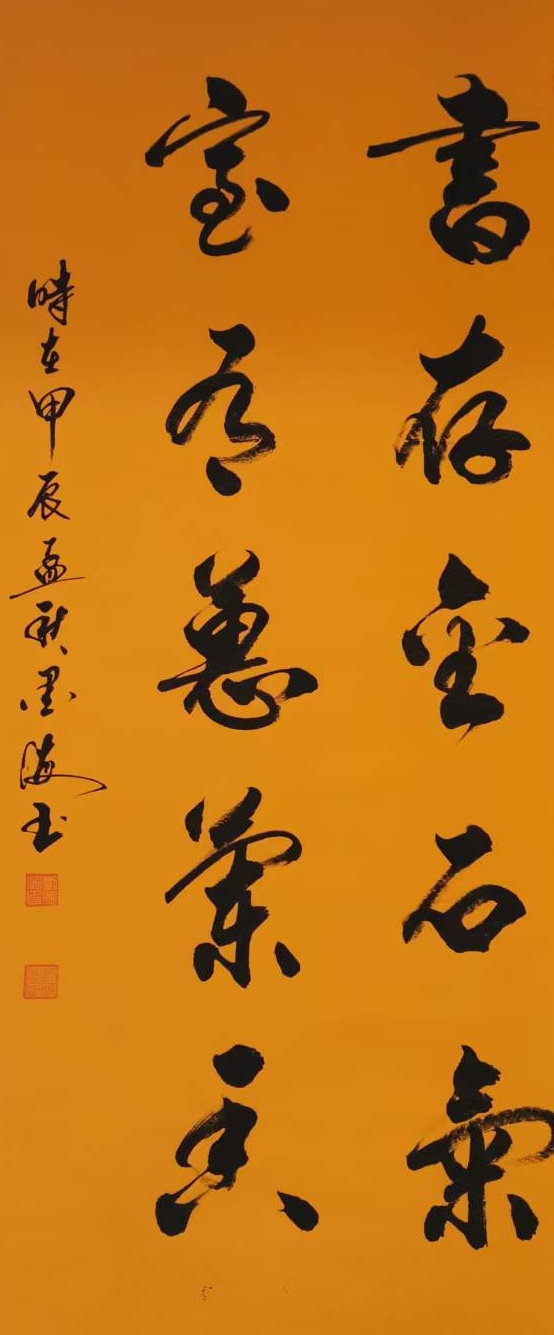 書存金石氣
室有蕙蘭香
時在甲辰孟秋墨海玉